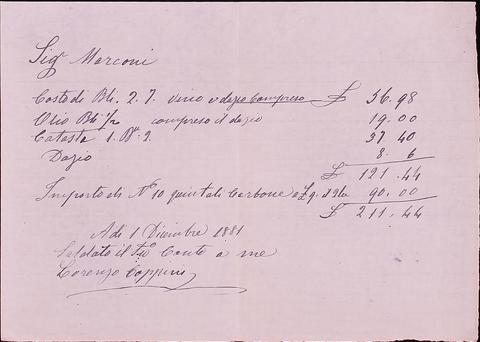 Sigr Marconi
Costo di Bli. 2. 7. vino e dazio compreso £ 36.98
Olio Bli 1/2 compreso il dazio 19.00
Catasta 1. N. 2. 37 40
Dazio 8. 6
£ 121.44
Importo di No 10 quintali Carbone a £ 9. 90.00
£ 211.44
Adi 1 Dicembre 1881
Saldato il Conto a me
Lorenzo Coppini